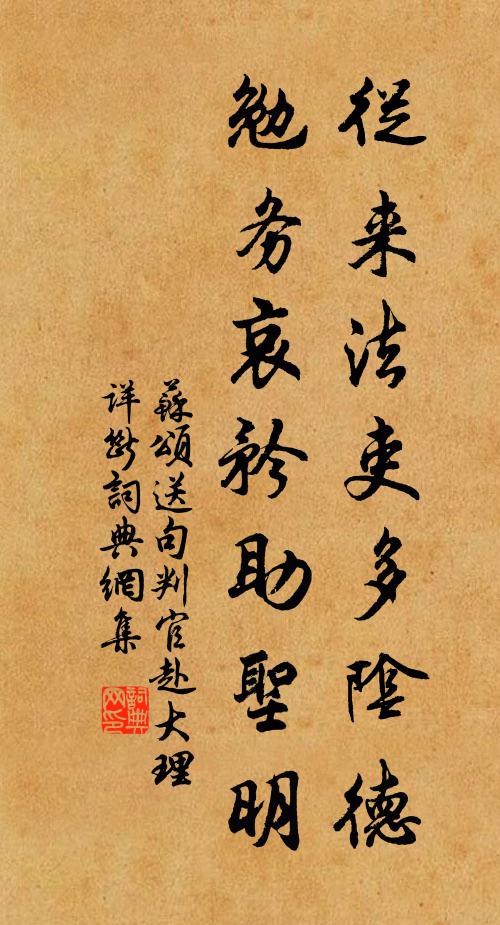 從来法吏多陰德
勉务哀矜助聖明
蘇頌送句判官赴大理
详斷詞典網集
詞典网印